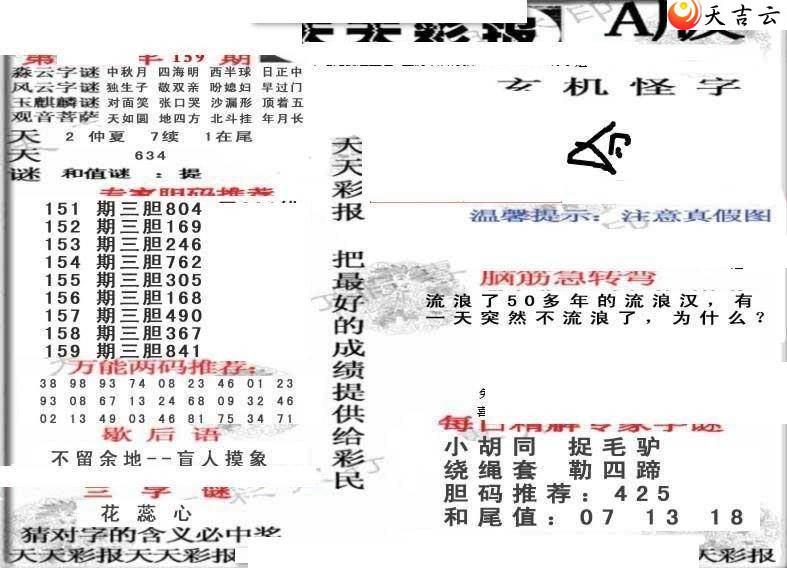 天吉云
天天彩报
第 年 159 期
森云字谜 中秋月 四海明 西半球 日正中
风云字谜 独生子 敬双亲 盼媳妇 早过门
玉麒麟谜 对面笑 张口哭 沙漏形 顶着五
观音菩萨 天如圆 地四方 北斗挂 年月长
天 2 仲夏 7续 1在尾
天 634
谜 和值谜 : 提
专家胆码推荐
151 期三胆804
152 期三胆169
153 期三胆246
154 期三胆762
155 期三胆305
156 期三胆168
157 期三胆490
158 期三胆367
159 期三胆841
万能两码推荐:
38 98 93 74 08 23 46 01 23
93 08 67 13 24 68 09 32 46
02 13 49 03 46 81 75 34 71
歇后语
不留余地--盲人摸象
三字谜
花蕊心
猜对字的含义必中奖
天天彩报天天彩报
天天彩报 把最好的成绩提供给彩民
玄机怪字
温馨提示: 注意真假图
脑筋急转弯
流浪了50多年的流浪汉，有
一天突然不流浪了，为什么？
每日精解专家字谜
小胡同 捉毛驴
绕绳套 勒四蹄
胆码推荐: 425
和尾值: 07 13 18
天彩报